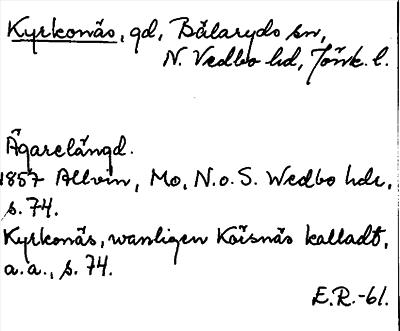 Kyrkonäs, gd, Bälaryds sn,
N. Vedbo hd, Jönk. l.
Ägarelängd.
1857 Allvin, Mo, N.o.S. Wedbo hdr,
s. 74.
Kyrkonäs, wanligen Koisnäs kalladt,
a.a., s. 74.
E.R.-61.